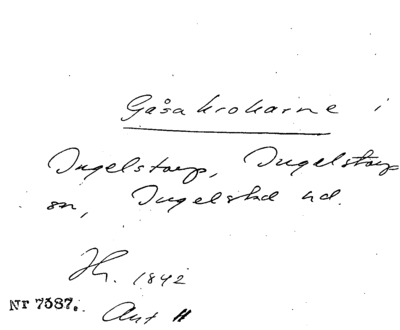 Gåsakrokarne i
Ingelstorp, Ingelstorp
sn, Ingelstad hd.
Hr. 1842
Nr 7587.
Ant II